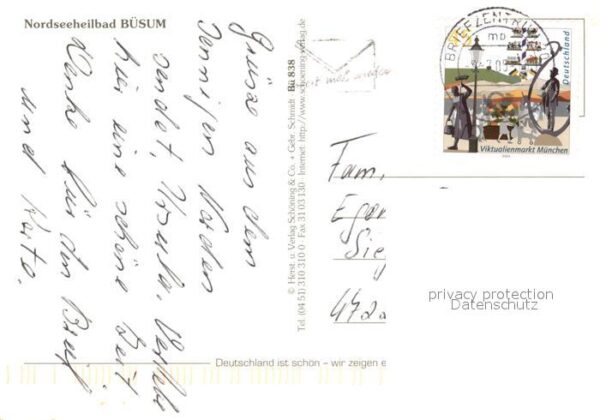 Nordseeheilbad BÜSUM
Grüße aus dem
sonnigen Norden
sendet, Ursula. Verlebe
hier eine schöne Zeit
Danke für den Brief
und Karte.
© Herst. u. Verlag Schöning & Co. + Gebr. Schmidt Bü 838
Tel. (04 51) 310 310 0 · Fax 31 03 130 · Internet: http://www.schoening-verlag.de
Deutschland ist schön – wir zeigen e
BRIEFZENTRUM
mb
Deutschland
Viktualienmarkt München
Fam.
Sie
472
privacy protection
Datenschutz